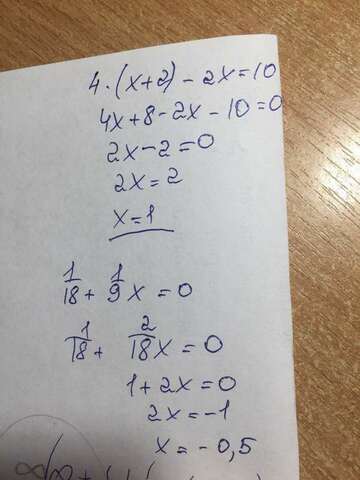 4·(x+2) - 2x=10
4x+8-2x-10=0
2x-2=0
2x=2
x=1
1/18 + 1/9 x = 0
1/18 + 2/18 x = 0
1+2x=0
2x=-1
x=-0,5